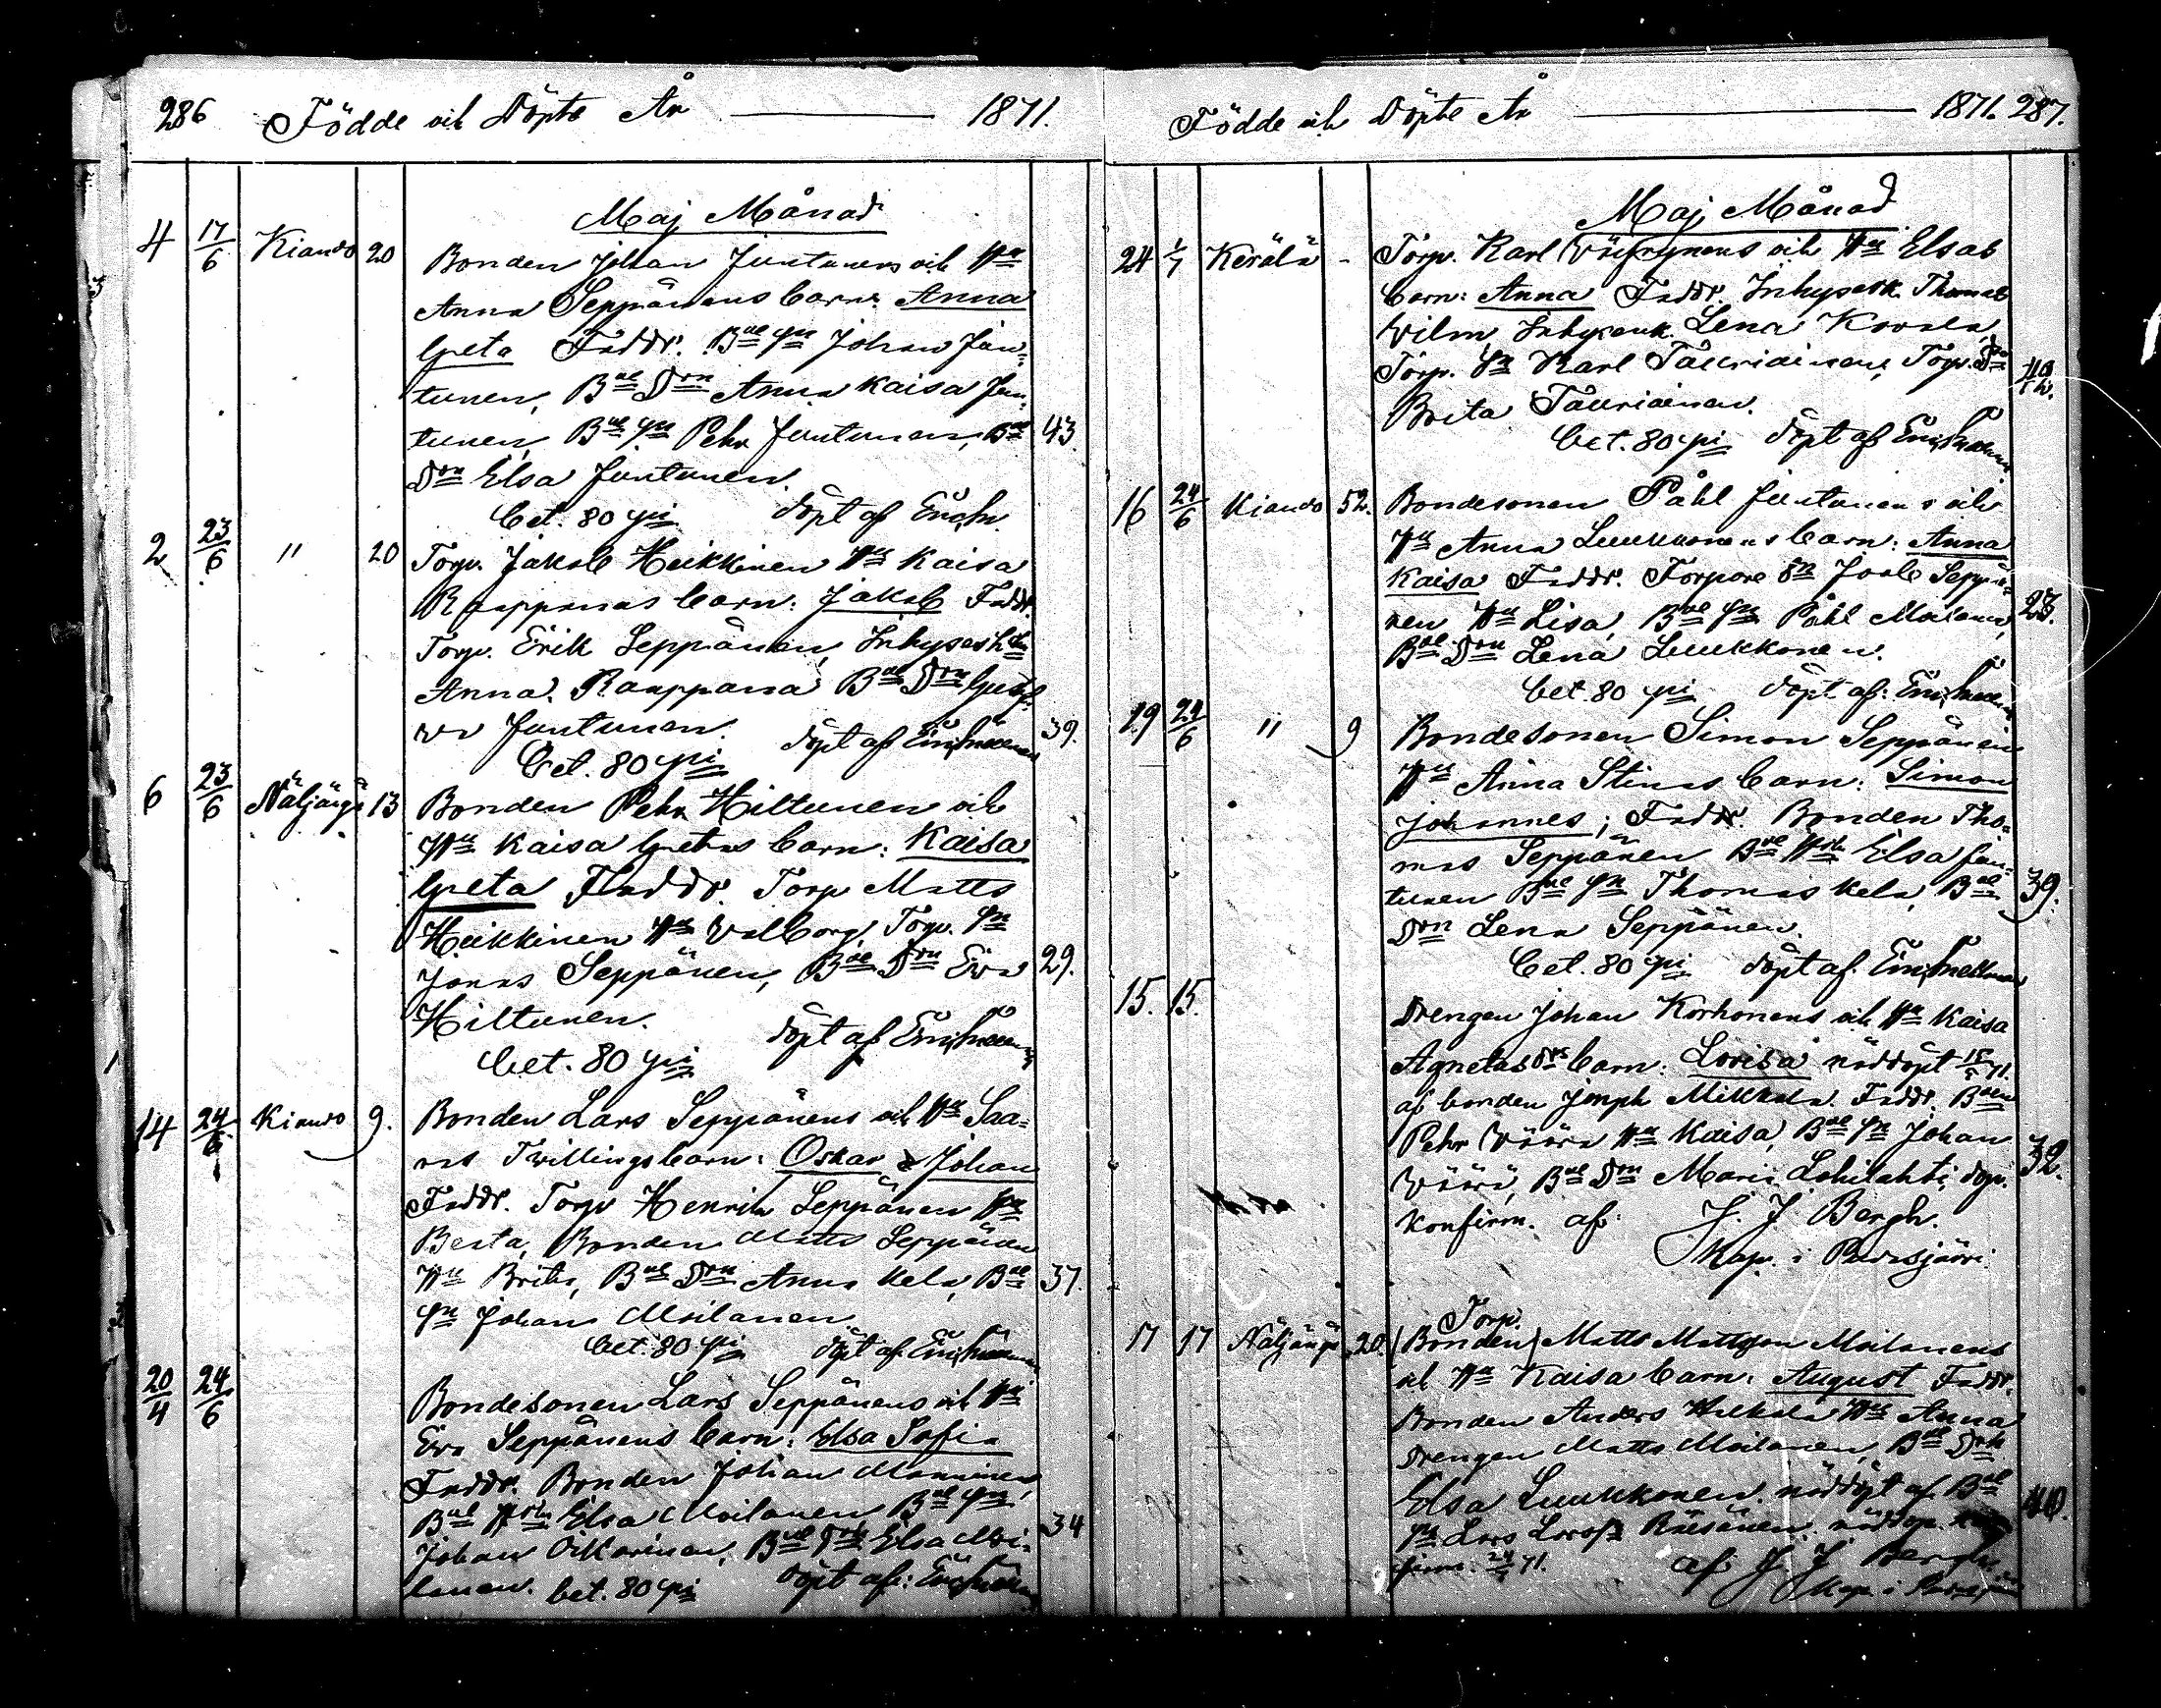 286 Födde och Döpte År 1871.
Maj Månad
4 17/6 Kiando 20 Bonden Johan Juntunens och Hu
Anna Seppänens barn: Anna
Greta Faddr. Bde Sn Johan Jun-
tunen, Bde Drn Anna Kaisa Jun-
tunen, Bde Sn Pehr Juntunen, Bde 43
Drn Elsa Juntunen.
bet. 80 pi döpt af
2 23/6 " 20 Torp. Jakob Heikkinen Hu Kaisa
Raappanas barn: Jakob Faddr.
Torp. Erik Seppänen, Inhyses
Anna Raappana Bde Drn Gusta-
va Juntunen. 39.
bet. 80 pi döpt af
6 23/6 Näljänge 13 Bonden Pehr Hiltunen och
Hu Kaisa Gretas barn: Kaisa
Greta Faddr. Torp Matts
Heikkinen Hu Valborg, Torp. Sn
Jonas Seppänen, Bde Drn Eva 29.
Hiltunen.
bet. 80 pi döpt af
14 24/6 Kiando 9. Bonden Lars Seppänens och Hu Saa-
ras Tvillingsbarn: Oskar & Johan
Faddr. Torp Henrik Seppänen Hu
Beata, Bonden Matts Seppänen
Hu Brita, Bde Drn Anna Kela, Bde 37.
Sn Johan Moilanen.
bet. 80 pi döpt af
20/4 24/6 Bondesonen Lars Seppänens och Hu
Eva Seppänens barn: Elsa Sofia
Faddr. Bonden Johan Manninen,
Bde Elsa Moilanen Bde Sn
Johan Oikarinen, Bde Drn Elsa Moi- 34
lanen. bet. 80 pi döpt af:
Födde och Döpte År 1871. 287.
Maj Månad
24 1/7 Kerälä - Torp. Karl och Hu Elsas
barn: Anna Faddr. Thomas
Vilm, Lena Kovala,
Torp. Sn Karl Tauriainen, Torp. Dr
Brita Tauriainen.
bet. 80 pi döpt af
16 24/6 Kiando 52. Bondesonen Påhl Juntunens och
Hu Anna Luukkonens barn: Anna
Kaisa Faddr. Torpare Sn Joole Seppä-
nen Hu Lisa, Bde Sn Påhl Moilanen, 23.
Bde Drn Lena Luukkonen.
bet. 80 pi döpt af:
19 24/6 " 9 Bondesonen Simon Seppänen
Hu Anna Stinas barn: Simon
Johannes; Faddr. Bonden Tho-
mas Seppänen Bde Elsa Jun-
tunen Bde Sn Thomas Kela, Bde 39.
Drn Lena Seppänen.
bet. 80 pi döpt af.
15. 15. Drengen Johan Korhonens och Hu Kaisa
Agnetas barn: Lovisa nöddöpt 71.
af bonden Joseph Mikkola. Faddr. Bden
Pehr Wääre Hu Kaisa, Bde Sn Johan 32.
Wäärä, Bde Drn Maria Lohilahti, dop.
konfirm. af: J. J. Bergh.
Kap. i Pudasjärvi
17 17 Näljänge 20. Torp.
(Bonden) Matts Mattsson Moilanens
och Hu Kaisa barn: August Faddr.
Bonden Anders Hu Anna
Drengen Matts Moilanen, Bde Drn
Elsa Luukkonen. nöddöpt af Bde 40.
Sn Lars Räisänen. nöddop.
71. af J. J. Bergh
Kap. i